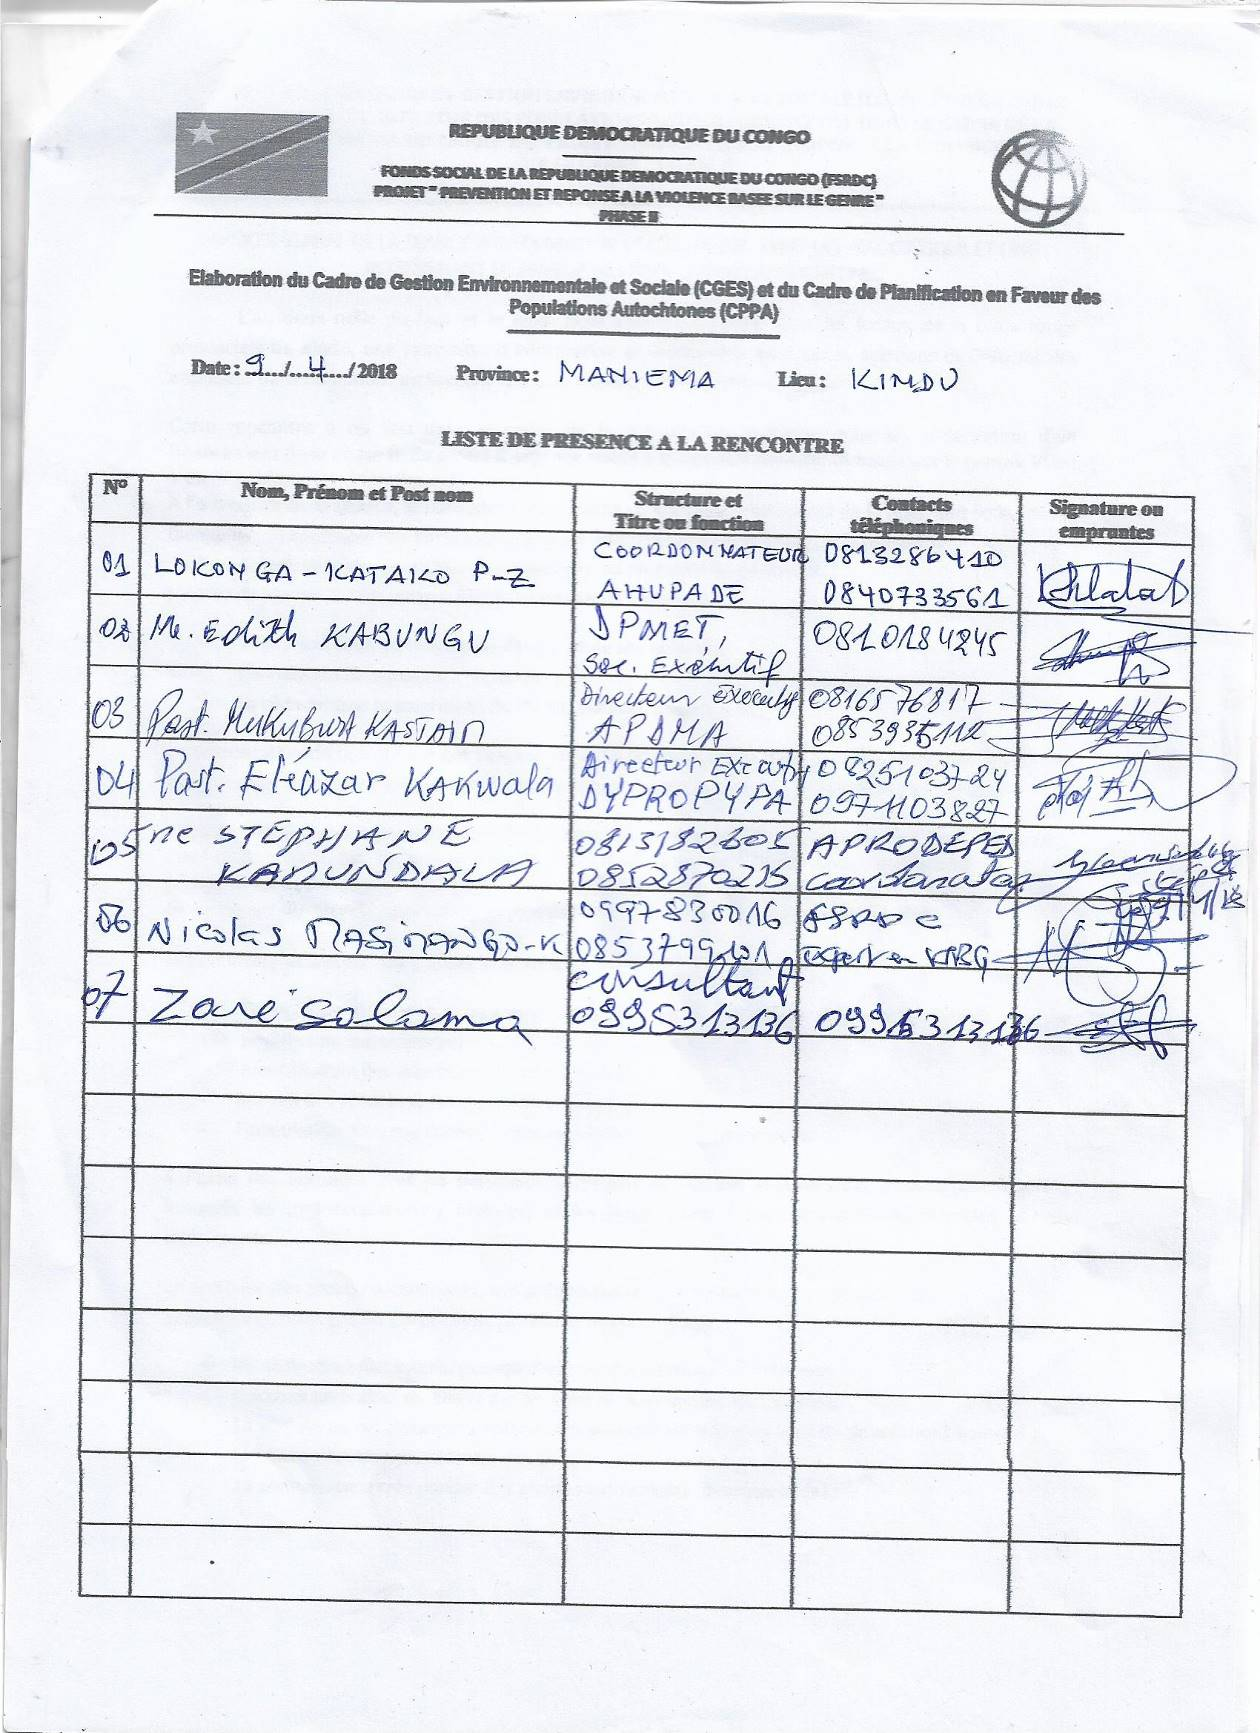 REPUBLIQUE DEMOCRATIQUE DU CONGO
FONDS SOCIAL DE LA REPUBLIQUE DEMOCRATIQUE DU CONGO (FSRDC)
PROJET " PREVENTION ET REPONSE A LA VIOLENCE BASEE SUR LE GENRE "
PHASE II
Elaboration du Cadre de Gestion Environnementale et Sociale (CGES) et du Cadre de Planification en Faveur des
Populations Autochtones (CPPA)
Date : 9 / 4 / 2018 Province : MANIEMA Lieu : KINDU
LISTE DE PRESENCE A LA RENCONTRE
N° Nom, Prénom et Post nom Structure et Titre ou fonction Contacts téléphoniques Signature ou empruntes
01 LOKONGA - KATAKO P-Z COORDONNATEUR 0813286410
AHUPADE 0840733561
02 Me. Edith KABUNGU DPMET, 0810184245
Sec. Exécutif
03 Past. Directeur éxécutif 0816576817
APDMA
04 Past. Eléazar KAKWALA Directeur Exécutif 0825103724
DYPROPYPA 0971103827
05 Me STEPHANE APRODEPED
KABUNDALA 0852870215
06 Nicolas MASIMANGO-K 0997830016
Expert en VBG
07 Zoré Salama Consultant
0995313136 0995313136